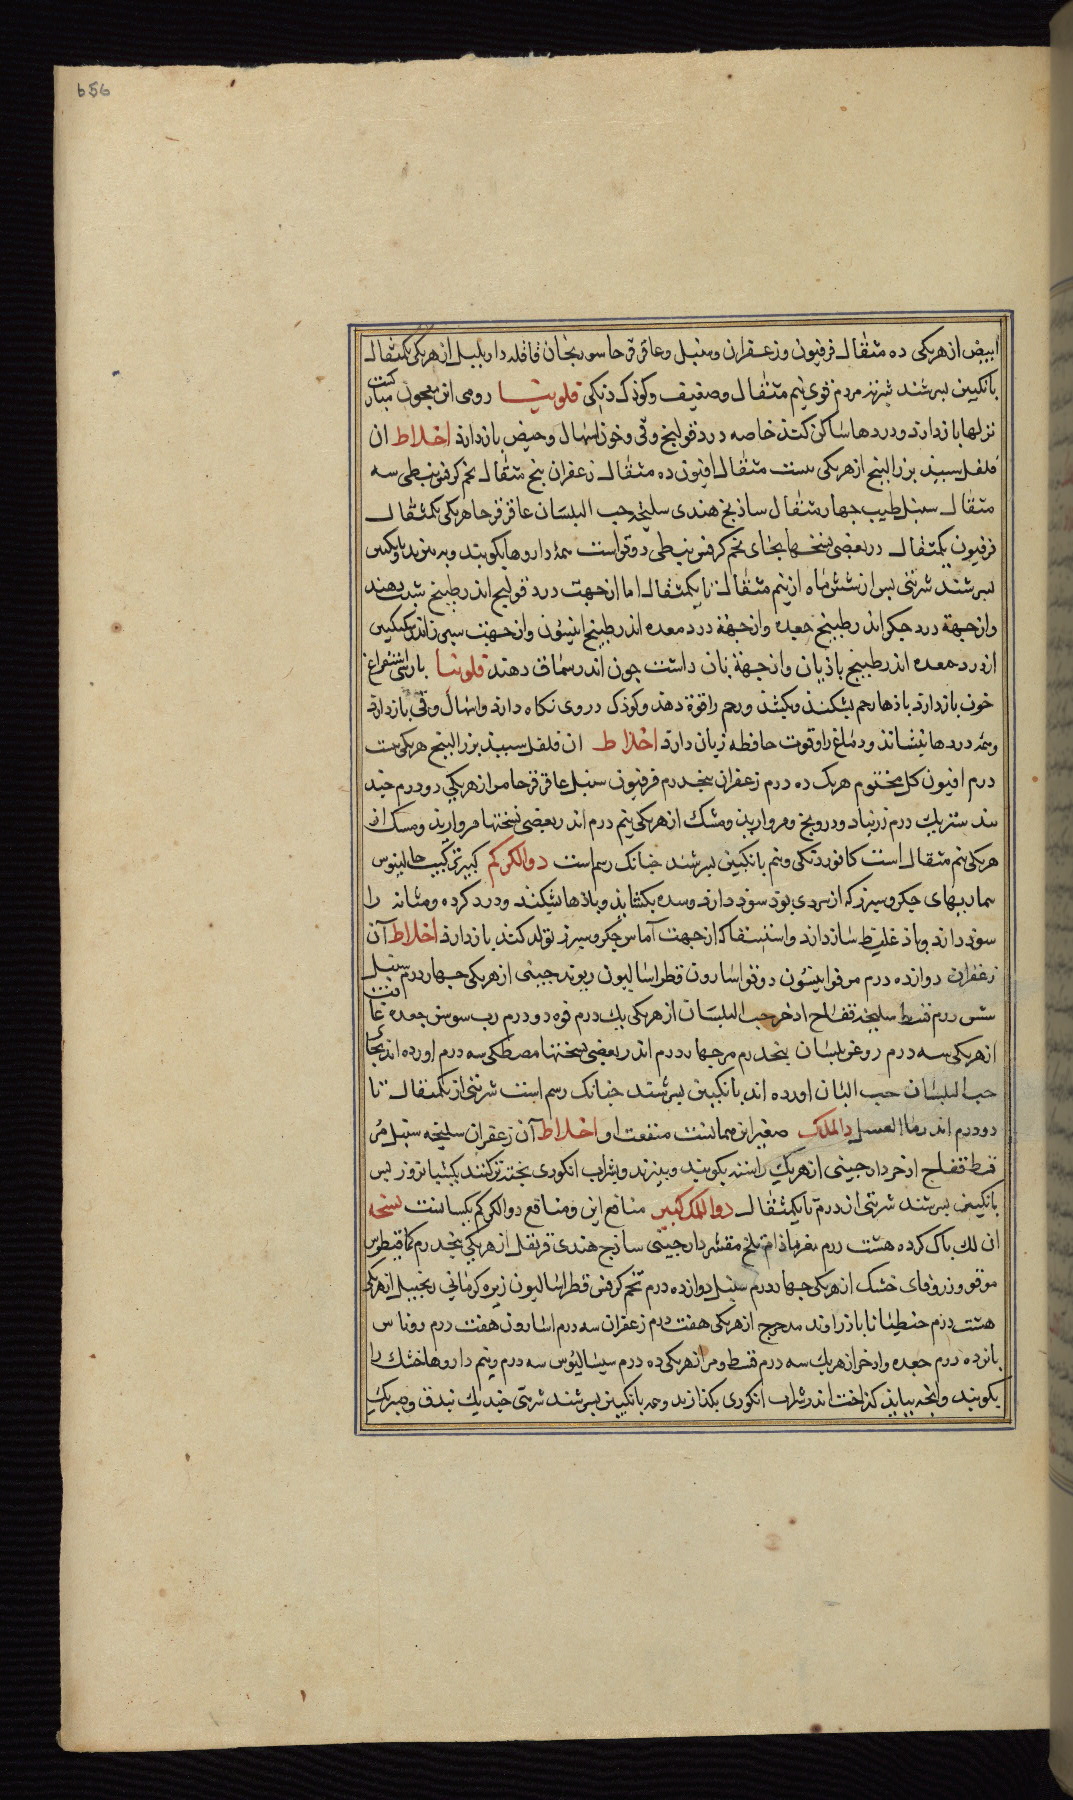 656
ابیض از هریکی ده مثقال فرفیون و زعفران و سنبل و عاقرقرحا سورنجان قاقله داربلبل از هریکی یکمثقال
بانکبین بسرشند شربت مردم قوی نیم مثقال و ضعیف و کوذک دنکی قلونیا رومی این معجون
نزلها بازدارد و دردها ساکن کند خاصه درد قولنج و قی و خون اسهال و حیض بازدارد اخلاط ان
فلفل سبید بزر البنج از هریکی بیست مثقال افیون ده مثقال زعفران بنج مثقال تخم کرفس نبطی سه
مثقال سنبل طیب جهار مثقال ساذنج هندی سلیخه حب البلسان عاقرقرحا هریکی یکمثقال
فرفیون یکمثقال در بعضی نسخها بجای تخم کرفس نبطی دوقو است همه داروها بکوبند و ببزند بانکبین
بسرشند شربتی بس از شش ماه از نیم مثقال تا یکمثقال اما از جهت درد قولنج اندر طبیخ شبت دهند
و از جهة درد جکر اندر طبیخ جعده و از جهة درد معده اندر طبیخ انیسون و از جهت سبرز اندر سکنکبین
از درد معده اندر طبیخ باذیان و از جهة نان داشت جون اندر سماق دهند قلونیا بارسی استفراغ
خون بازدارد باذها رحم بشکند و بکشد و رحم را قوة دهد و کوذک در وی نکاه دارد و اسهال و قی بازدارد
و همه دردها بنشاند و دماغ را و قوت حافظه زیان دارد اخلاط ان فلفل سبید بزر البنج هریکی بیست
درم افیون کل مختوم هریک ده درم زعفران بنجدرم فرفیون سنبل عاقرقرحا مر از هریکی دو درم جند
بیدستر یک درم زرنباد و درونج و مروارید و مشک از هریکی نیم درم اندر بعضی نسختها مروارید و مسک از
هریکی نیم مثقال است کافور دنکی و نیم بانکبین بسرشند جنانک رسم است دوالکرکم کبیر ترکیب جالینوس
بیماریهای جکر و سبرز که از سردی بوذ سوذ دارد و سده بکشاید و باذها بشکند و درد کرده و مثانه را
سوذ دارد و باذ غلیظ ساز دارد و استسقا که از جهت آماس جکر و سبرز تولد کند بازدارد اخلاط آن
زعفران دوازده درم مر فو انیسون دوقو اسارون فطراسالیون ریوند جینی از هریکی جهار درم سنبل
شش درم قسط سلیخه فقاح اذخر حب البلسان از هریکی یک درم فوه دو درم رب سوس جعده غافت
از هریکی سه درم روغن بلسان بنجدرم مر جهار درم اندر بعضی نسختها مصطکی سه درم اورده اند بجای
حب البلسان حب البان اورده اند بانکبین بسرشند جنانک رسم است شربتی از یکمثقال تا
دو درم اندر ماء العسل دالملک صغیر این همانست منفعت او اخلاط آن زعفران سلیخه سنبل مر
قسط فقاح اذخر دارجینی از هریک راست بکوبند و ببزند و بشراب انکوری بخته تر کنند یکشبانروز بس
بانکبین بسرشند شربتی از درم تا یکمثقال دوالملک کبیر منافع این و منافع دوالکرکم یکسانست نسخه
ان لک باک کرده هشت درم مغز باذام تلخ مقشر دارجینی ساذج هندی قرنفل از هریکی بنجدرم کمافیطوس
مو فو و زوفای خشک از هریکی جهار درم سنبل دوازده درم تخم کرفس فطراسالیون زیره کرمانی زنجبیل از هریکی
هشت درم جنطیانا باز راوند مدحرج از هریکی هفت درم زعفران سه درم اسارون هفت درم روناس
بانزده درم جعده و اذخر از هریک سه درم قسط و مر از هریکی ده درم سیسالیوس سه درم و نیم داروها خشک را
بکوبند و انجه بباید کذاخت اندر شراب انکوری بکذازند و همه بانکبین بسرشند شربتی جند یک بندق و صبر یک